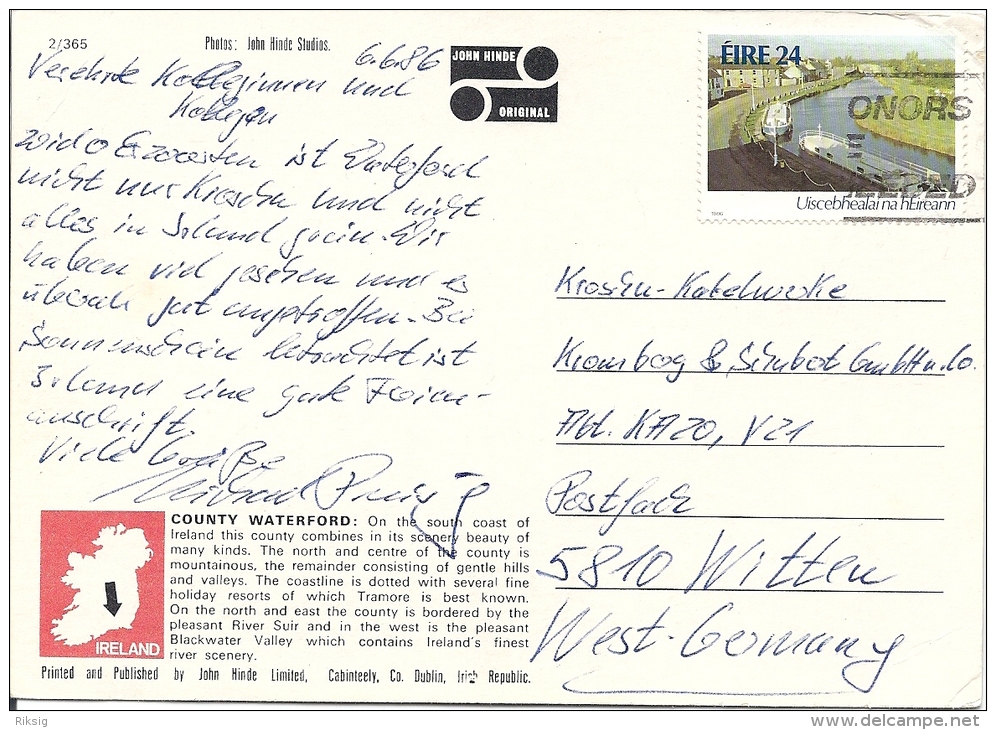 2/365
Photos: John Hinde Studios.
6.6.86
JOHN HINDE
ORIGINAL
ÉIRE 24
ONORS
Uiscebhealaí na hÉireann
Verehrte Kolleginnen und
Kollegen
wider Erwarten ist Waterford
nicht nur Kirschen und nicht
alles in Irland grün. Wir
haben viel gesehen und es
überall gut angetroffen. Bei
Sonnenschein betrachtet ist
Irland eine gute Ferien-
anschrift.
Viele Grüße
Abt. KA20, V21
Postfach
5810 Witten
West-Germany
COUNTY WATERFORD: On the south coast of
Ireland this county combines in its scenery beauty of
many kinds. The north and centre of the county is
mountainous, the remainder consisting of gentle hills
and valleys. The coastline is dotted with several fine
holiday resorts of which Tramore is best known.
On the north and east the county is bordered by the
pleasant River Suir and in the west is the pleasant
Blackwater Valley which contains Ireland's finest
river scenery.
IRELAND
Printed and Published by John Hinde Limited, Cabinteely, Co. Dublin, Irish Republic.
Riksig
delcampe.net